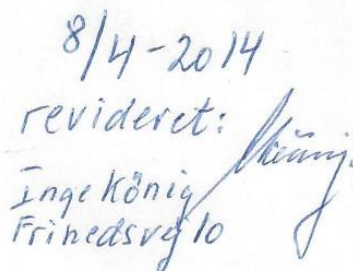 8/4-2014
revideret:
Inge König
Frihedsvej 10